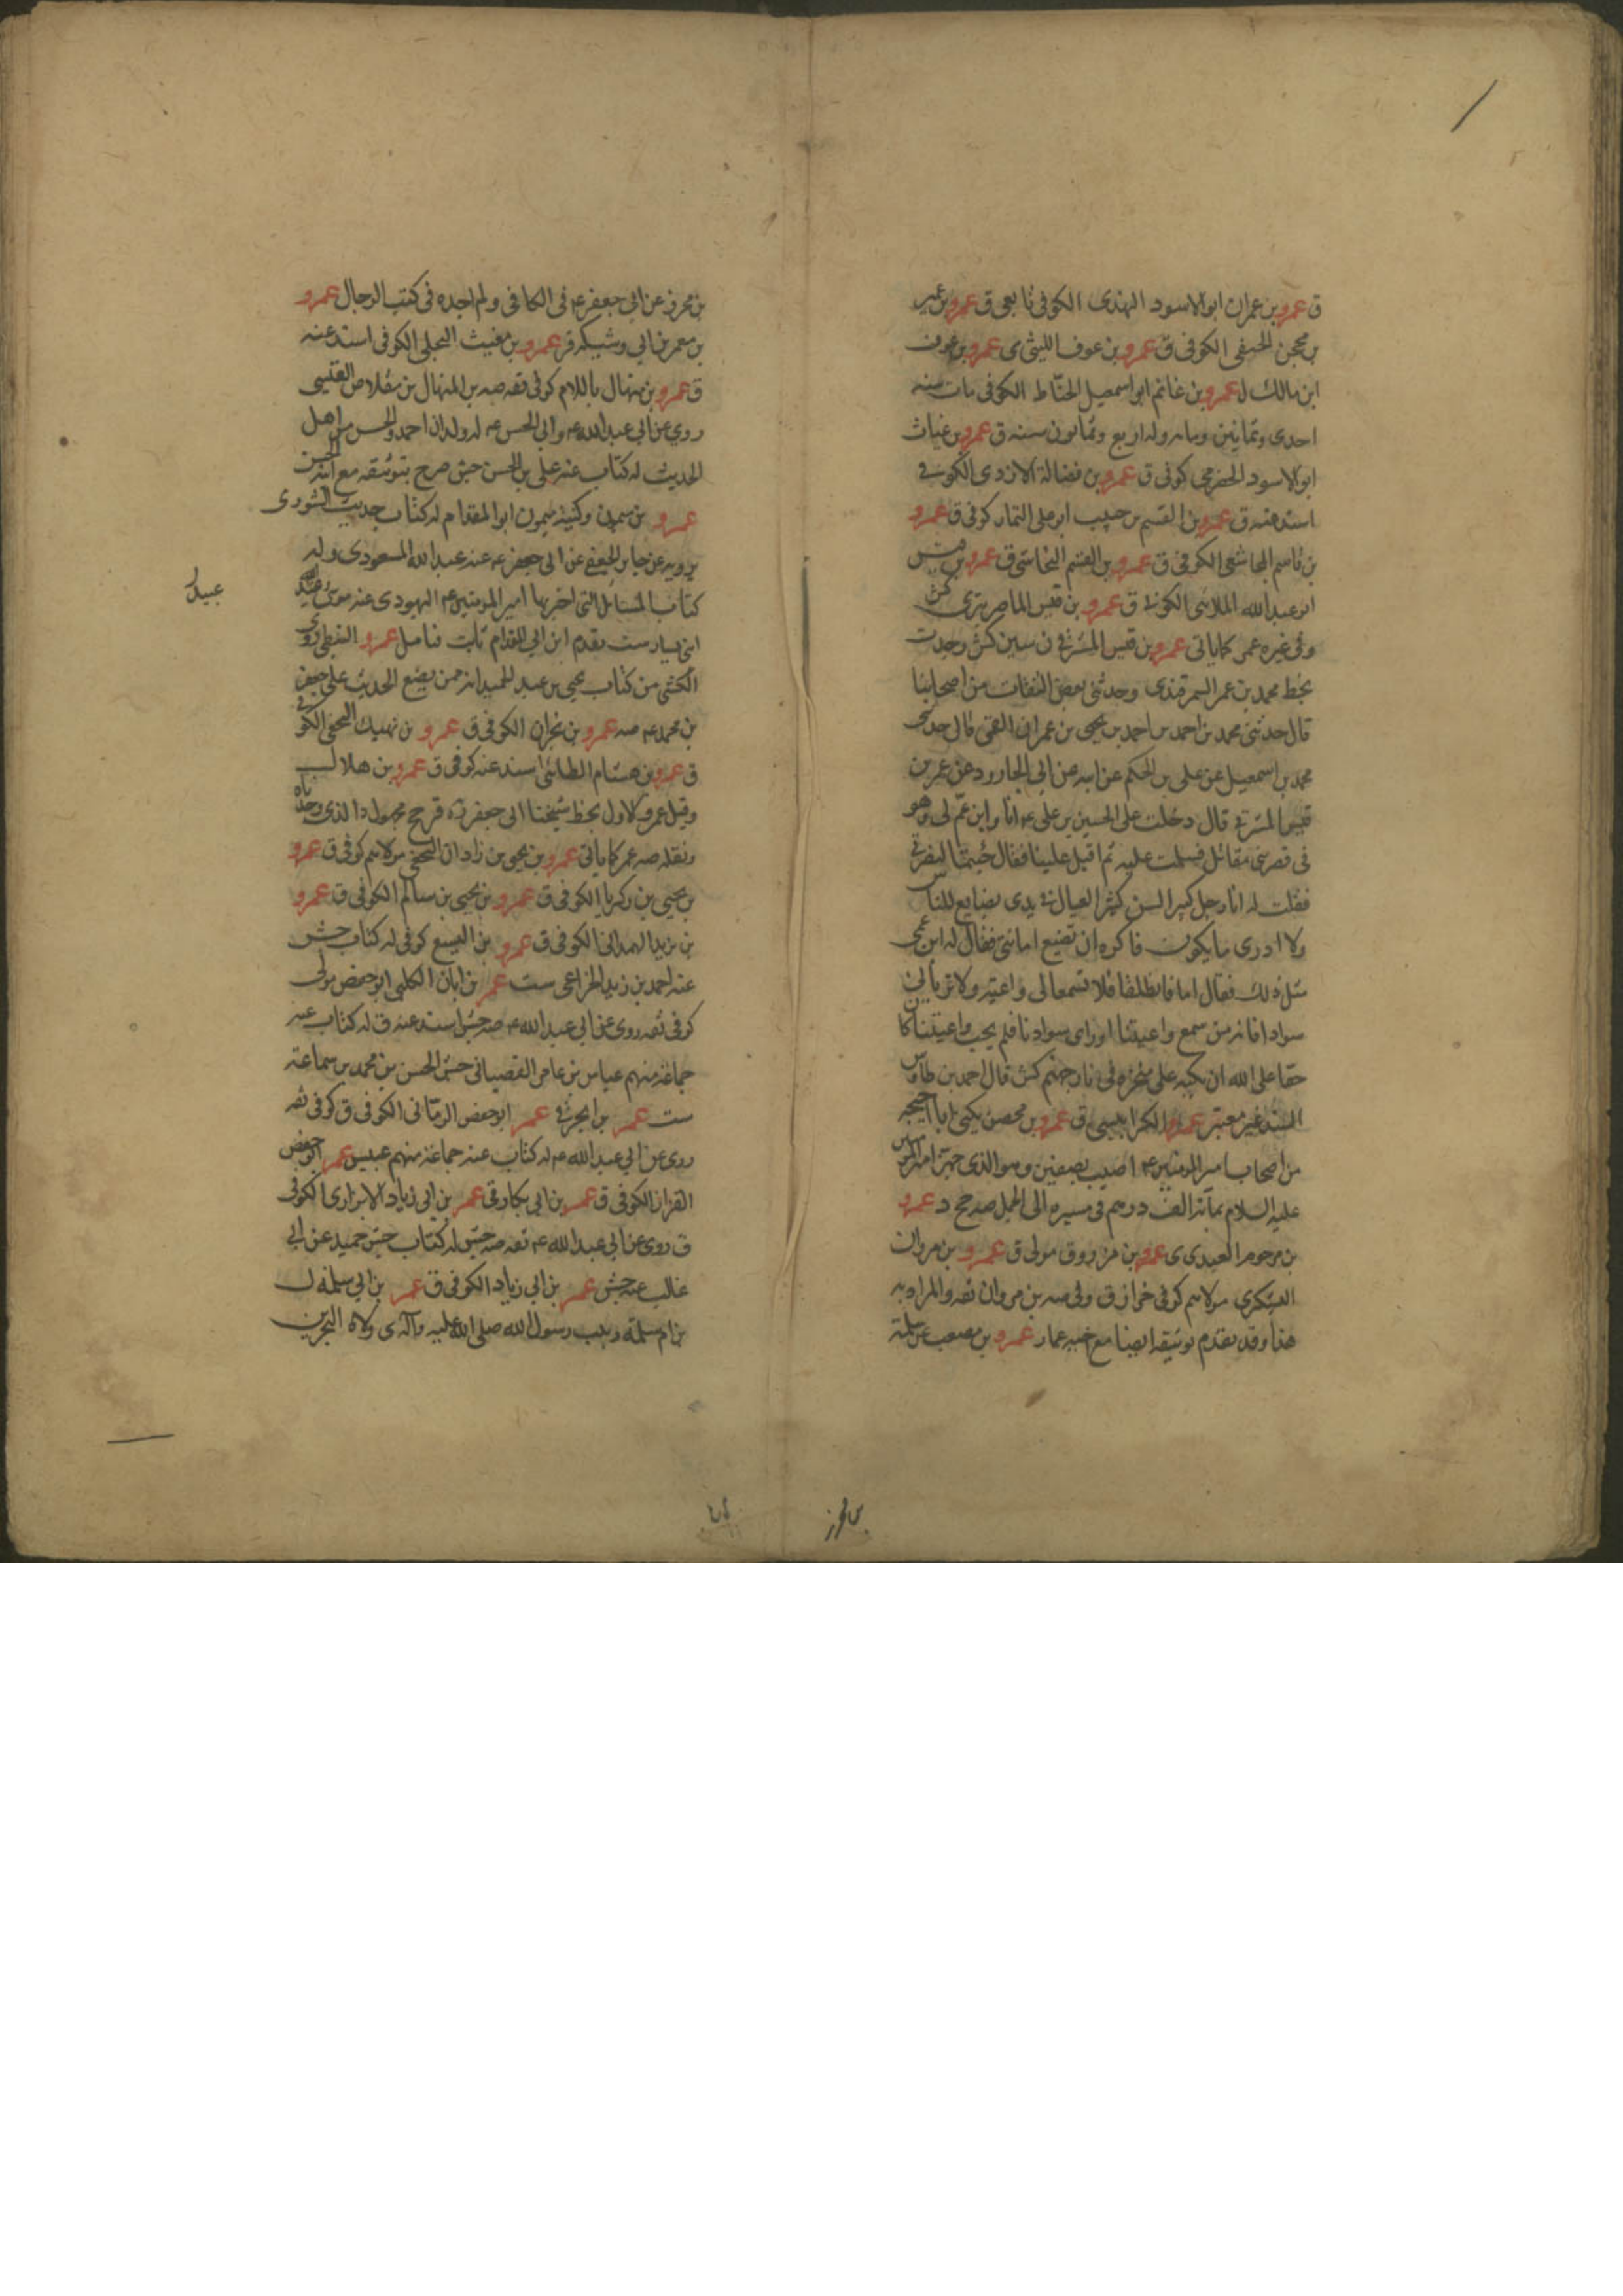 ق عمرو بن عمران ابو الاسود النهدى الكوفى تابعى ق عمرو بن عمير
بن محجن الحنفى الكوفى ق عمرو بن عوف الليثى ى عمرو بن عوف
ابن مالك ل عمرو بن غانم ابو اسمعيل الحنّاط الكوفى مات سنه
احدى وثمانين ومايه وله اربع وثمانون سنه ق عمرو بن غياث
ابو الاسود الحضرمى كوفى ق عمرو بن فضالة الازدى الكوفى
اسند عنه ق عمرو بن القسم بن حبيب ابو على التمار كوفى ق عمرو
بن قاسم المجاشعى الكوفى ق عمرو بن القسم النخاسى ق عمرو بن قيس
ابو عبد الله الملائى الكوفى ق عمرو بن قيس الماصر بترى كش
وفى غيره عمر كما ياتى عمرو بن قيس المشرقى ن سين كش وجدت
بخط محمد بن عمر السمرقندى وحدثنى بعض الثقات من اصحابنا
قال حدثنى محمد بن احمد بن احمد بن يحيى بن عمران القمى قال حدثنى
محمد بن اسمعيل عن على بن الحكم عن ابيه عن ابى الجارود عن عمرو بن
قيس المشرقى قال دخلت على الحسين بن على ع انا وابن عمّ لى وهو
فى قصر بنى مقاتل فسلمت عليه ثم اقبل علينا فقال جئتما لنصرتى
فقلت له انا رجل كبير السن كثير العيال فى يدى بضايع للناس
ولا ادرى ما يكون فاكره ان تضيع امانتى فقال له ابن عمى
مثل ذلك فقال اما فانطلقا فلا تسمعا لى واعية ولا تريا لى
سوادا فانه من سمع واعيتنا او راى سوادنا فلم يجب واعيتنا كان
حقا على الله ان يكبه على منخره فى نار جهنم كش قال احمد بن طاوس
السند غير معتبر عمرو الكرابيسى ق عمرو بن محصن يكنى ابا احيحه
من اصحاب امير المومنين ع اصيب بصفين وهو الذى جهز امير المومنين
عليه السلام بماية الف درهم فى مسيره الى الجمل صه جح د عمرو
بن مرجوم العبدى ى عمرو بن مرزوق مولى ق عمرو بن مروان
اليشكرى مولاهم كوفى خزاز ق وفى صه بن مروان ثقه والمراد به
هذا وقد تقدم توثيقه ايضا مع اخيه عمار عمرو بن مصعب عن سلمة
بن محرز عن ابى جعفر ع فى الكافى ولم اجده فى كتب الرجال عمرو
بن معمر بن ابى وشيكه قر عمرو بن مغيث البجلى الكوفى اسند عنه
ق عمرو بن منهال باللام كوفى ثقه صه بن المنهال بن مقلاص القيسى
روى عن ابى عبد الله ع وابى الحسن ع له ولدان احمد والحسن من اهل
الحديث له كتاب عنه على بن الحسن جش صرح بتوثيقه مع ابنه الحسن
عمرو بن ميمون وكنيته ميمون ابو المقدام له كتاب حديث الشورى
يرويه عن جابر الجعفى عن ابى جعفر ع عنه عبد الله المسعودى وله
كتاب المسايل التى اخبر بها امير المومنين ع اليهودى عنه
ابن يسار ست تقدم ابن ابى المقدام ثابت فتامل عمرو النبطى روى
الكشى من كتاب يحيى بن عبد الحميد انه ممن يضع الحديث على جعفر
بن محمد ع صه عمرو بن نجران الكوفى ق عمرو بن نهيك النخعى الكوفى
ق عمرو بن هشام الطائى اسند عنه كوفى ق عمرو بن هلال
وقيل عمر والاول بخط شيخنا ابى جعفر ره قر جح مجهول د الذى وجدناه
ونقله صه عمر كما ياتى عمرو بن يحيى بن زاذان النخعى مولاهم كوفى ق عمرو
بن يحيى بن زكريا الكوفى ق عمرو بن يحيى بن سالم الكوفى ق عمرو
بن يزيد الهمدانى الكوفى ق عمرو بن اليسع كوفى له كتاب جش
عنه احمد بن زيد الخزاعى ست عمر بن ابان الكلبى ابو حفص مولى
كوفى ثقه روى عن ابى عبد الله ع صه جش اسند عنه ق له كتاب عنه
جماعة منهم عباس بن عامر القصبانى جش الحسن بن محمد بن سماعة
ست عمر بن ابجر قى عمر ابو حفص الرمّانى الكوفى ق كوفى ثقه
روى عن ابى عبد الله ع له كتاب عنه جماعة منهم عبيس عمر ابو حفص
القزاز الكوفى ق عمر بن ابى بكار قى عمر بن ابى زياد الابزارى الكوفى
ق روى عن ابى عبد الله ع ثقه صه جش له كتاب جش حميد عن ابى
غالب عنه جش عمر بن ابى زياد الكوفى ق عمر بن ابى سلمة ل
بن ام سلمة ربيب رسول الله صلى الله عليه وآله ى ولاه البحرين
عبيد